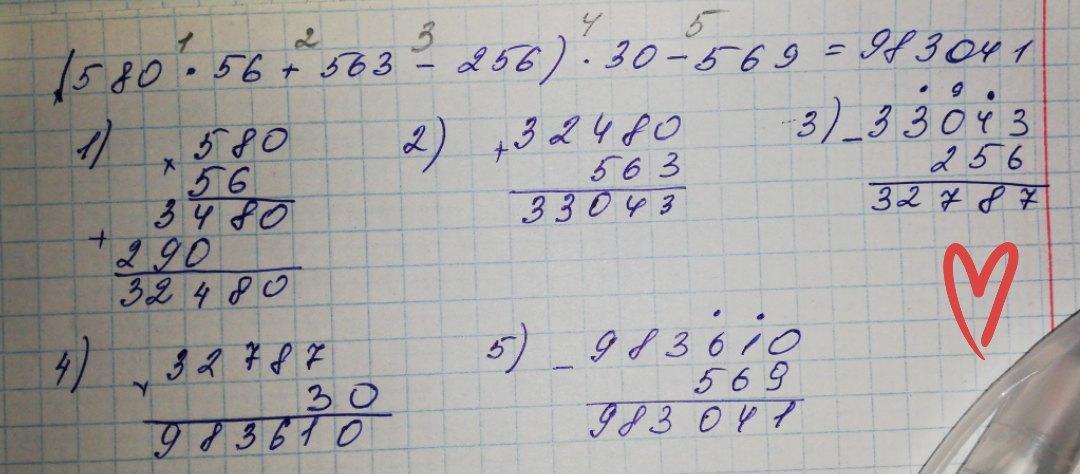 1 2 3 4 5
(580 · 56 + 563 - 256) · 30 - 569 = 983041
1) × 580
56
3480
+ 290
32480
2) + 32480
563
33043
3) - 33043
9
256
32787
4) × 32787
30
983610
5) - 983610
569
983041